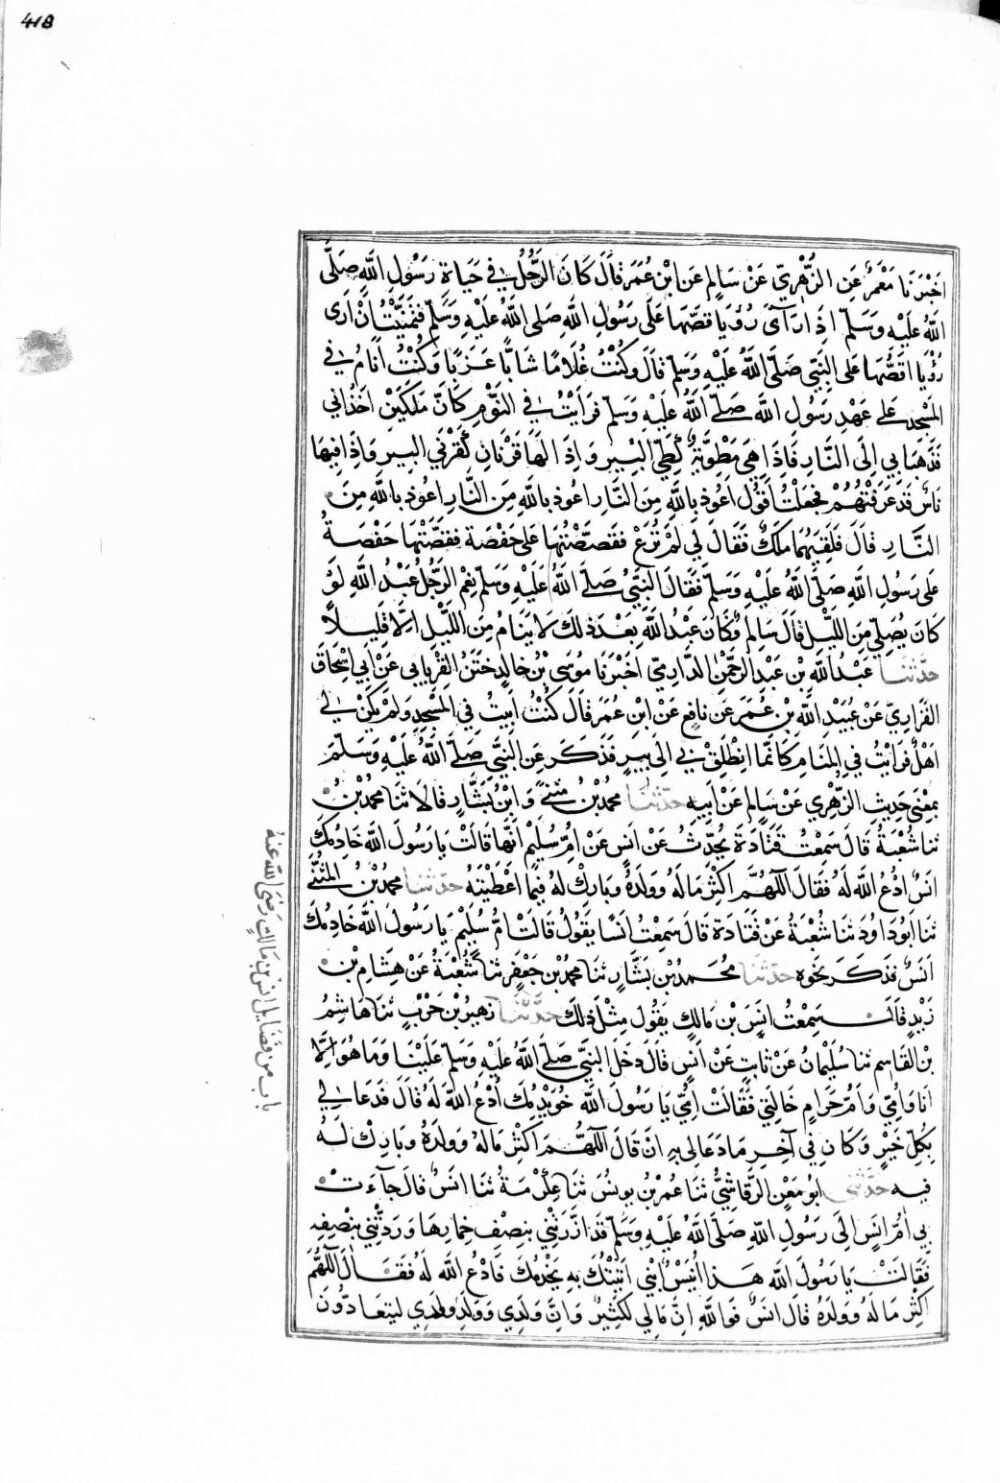 418
اَخْبَرَنَا مَعْمَرٌ عَنِ الزُّهْرِيِّ عَنْ سَالِمٍ عَنِ ابْنِ عُمَرَ قَالَ كَانَ الرَّجُلُ فِي حَيَاةِ رَسُولِ اللّٰهِ صَلَّى
اللّٰهُ عَلَيْهِ وَسَلَّمَ اِذَا رَاَى رُؤْيَا قَصَّهَا عَلَى رَسُولِ اللّٰهِ صَلَى اللّٰهُ عَلَيْهِ وَسَلَّمَ فَتَمَنَّيْتُ اَنْ اَرَى
رُؤْيَا اَقُصُّهَا عَلَى النَّبِيِّ صَلَّى اللّٰهُ عَلَيْهِ وَسَلَّمَ قَالَ وَكُنْتُ غُلَامًا شَابًّا عَزَبًا وَكُنْتُ اَنَامُ فِي
المَسْجِدِ عَلَى عَهْدِ رَسُولِ اللّٰهِ صَلَّى اللّٰهُ عَلَيْهِ وَسَلَّمَ فَرَاَيْتُ فِي النَّوْمِ كَاَنَّ مَلَكَيْنِ اَخَذَانِي
فَذَهَبَا بِي اِلَى النَّارِ فَاِذَا هِيَ مَطْوِيَّةٌ كَطَيِّ البِيرِ وَاِذَا لَهَا قَرْنَانِ كَقَرْنَيِ البِيرِ وَاِذَا فِيهَا
نَاسٌ قَدْ عَرَفْتُهُمْ فَجَعَلْتُ اَقُولُ اَعُوذُ بِاللّٰهِ مِنَ النَّارِ اَعُوذُ بِاللّٰهِ مِنَ النَّارِ اَعُوذُ بِاللّٰهِ مِنَ
النَّارِ قَالَ فَلَقِيَهُمَا مَلَكٌ فَقَالَ لِي لَمْ تُرَعْ فَقَصَصْتُهَا عَلَى حَفْصَةَ فَقَصَّتْهَا حَفْصَةُ
عَلَى رَسُولِ اللّٰهِ صَلَّى اللّٰهُ عَلَيْهِ وَسَلَّمَ فَقَالَ النَّبِيُّ صَلَّى اللّٰهُ عَلَيْهِ وَسَلَّمَ نِعْمَ الرَّجُلُ عَبْدُ اللّٰهِ لَوْ
كَانَ يُصَلِّي مِنَ اللَّيْلِ قَالَ سَالِمٌ وَكَانَ عَبْدُ اللّٰهِ بَعْدَ ذٰلِكَ لَا يَنَامُ مِنَ اللَّيْلِ اِلَّا قَلِيلًا
حَدَّثَنَا عَبْدُ اللّٰهِ بْنُ عَبْدِ الرَّحْمٰنِ الدَّارِمِيُّ اَخْبَرَنَا مُوسَى بْنُ خَالِدٍ خَتَنُ الفِرْيَابِي عَنْ اَبِي اِسْحَاقَ
الفَزَارِيِّ عَنْ عُبَيْدِ اللّٰهِ بْنِ عُمَرَ عَنْ نَافِعٍ عَنْ ابْنِ عُمَرَ قَالَ كُنْتُ اَبِيتُ فِي المَسْجِدِ وَلَمْ يَكُنْ لِي
اَهْلٌ فَرَاَيْتُ فِي المَنَامِ كَاَنَّمَا انْطُلِقَ بِي اِلَى بِيرٍ فَذَكَرَ عَنِ النَّبِيِّ صَلَّى اللّٰهُ عَلَيْهِ وَسَلَّمَ
بِمَعْنَى حَدِيثِ الزُّهْرِي عَنْ سَالِمٍ عَنْ اَبِيهِ حَدَّثَنَا مُحَمَّدُ بْنُ مُثَنًّى وَابْنُ بَشَّارٍ قَالَا ثَنَا مُحَمَّدُ بْنُ
ثَنَا شُعْبَةُ قَالَ سَمِعْتُ قَتَادَةَ يُحَدِّثُ عَنْ اَنَسٍ عَنْ اُمِّ سُلَيْمٍ اَنَّهَا قَالَتْ يَا رَسُولَ اللّٰهِ خَادِمُكَ
اَنَسٌ ادْعُ اللّٰهَ لَهُ فَقَالَ اللّٰهُمَّ اَكْثِرْ مَالَهُ وَوَلَدَهُ وَبَارِكْ لَهُ فِيمَا اَعْطَيْتَهُ حَدَّثَنَا مُحَمَّدُ بْنُ المُثَنَّى
ثَنَا اَبُو دَاوُدَ ثَنَا شُعْبَةُ عَنْ قَتَادَةَ قَالَ سَمِعْتُ اَنَسًا يَقُولُ قَالَتْ اُمُّ سُلَيْمٍ يَا رَسُولَ اللّٰهِ خَادِمُكَ
اَنَسٌ فَذَكَرَ نَحْوَهُ حَدَّثَنَا مُحَمَّدُ بْنُ بَشَّارٍ ثَنَا مُحَمَّدُ بْنُ جَعْفَرٍ ثَنَا شُعْبَةُ عَنْ هِشَامِ بْنِ
زَيْدٍ قَالَ سَمِعْتُ اَنَسَ بْنَ مَالِكٍ يَقُولُ مِثْلَ ذٰلِكَ حَدَّثَنَا زُهَيْرُ بْنُ حَرْبٍ ثَنَا هَاشِمُ
بْنُ القَاسِمِ ثَنَا سُلَيْمَانُ عَنْ ثَابِتٍ عَنْ اَنَسٍ قَالَ دَخَلَ النَّبِيُّ صَلَّى اللّٰهُ عَلَيْهِ وَسَلَّمَ عَلَيْنَا وَمَا هُوَ اِلَّا
اَنَا وَاُمِّي وَاُمُّ حَرَامٍ خَالَتِي فَقَالَتْ اُمِّي يَا رَسُولَ اللّٰهِ خُوَيْدِمُكَ اُدْعُ اللّٰهَ لَهُ قَالَ فَدَعَا لِي
بِكُلِّ خَيْرٍ وَكَانَ فِي آخِرِ مَا دَعَا لِي بِهِ اَنْ قَالَ اللّٰهُمَّ اَكْثِرْ مَالَهُ وَوَلَدَهُ وَبَارِكْ لَهُ
فِيهِ حَدَّثَنِي اَبُو مَعْنٍ الرَّقَاشِيُّ ثَنَا عُمَرُ بْنُ يُونُسَ ثَنَا عِكْرِمَةُ ثَنَا اَنَسٌ قَالَ جَآءَتْ
بِي اُمُّ اَنَسٍ اِلَى رَسُولِ اللّٰهِ صَلَّى اللّٰهُ عَلَيْهِ وَسَلَّمَ قَدْ اَزَّرَتْنِي بِنِصْفِ خِمَارِهَا وَرَدَّتْنِي بِنِصْفِهِ
فَقَالَتْ يَا رَسُولَ اللّٰهِ هَذَا اُنَيْسٌ ابْنِي اَتَيْتُكَ بِهِ يَخْدُمُكَ فَادْعُ اللّٰهَ لَهُ فَقَالَ اللّٰهُمَّ
اَكْثِرْ مَالَهُ وَوَلَدَهُ قَالَ اَنَسٌ فَوَاللّٰهِ اِنَّ مَالِي لَكَثِيرٌ وَاِنَّ وَلَدِي وَوَلَدَ وَلَدِي لَيَتَعَادُّونَ
باب من فَضَايل اَنَس بن مَالِكٍ رَضِىَ اللّٰهُ عَنْهُ